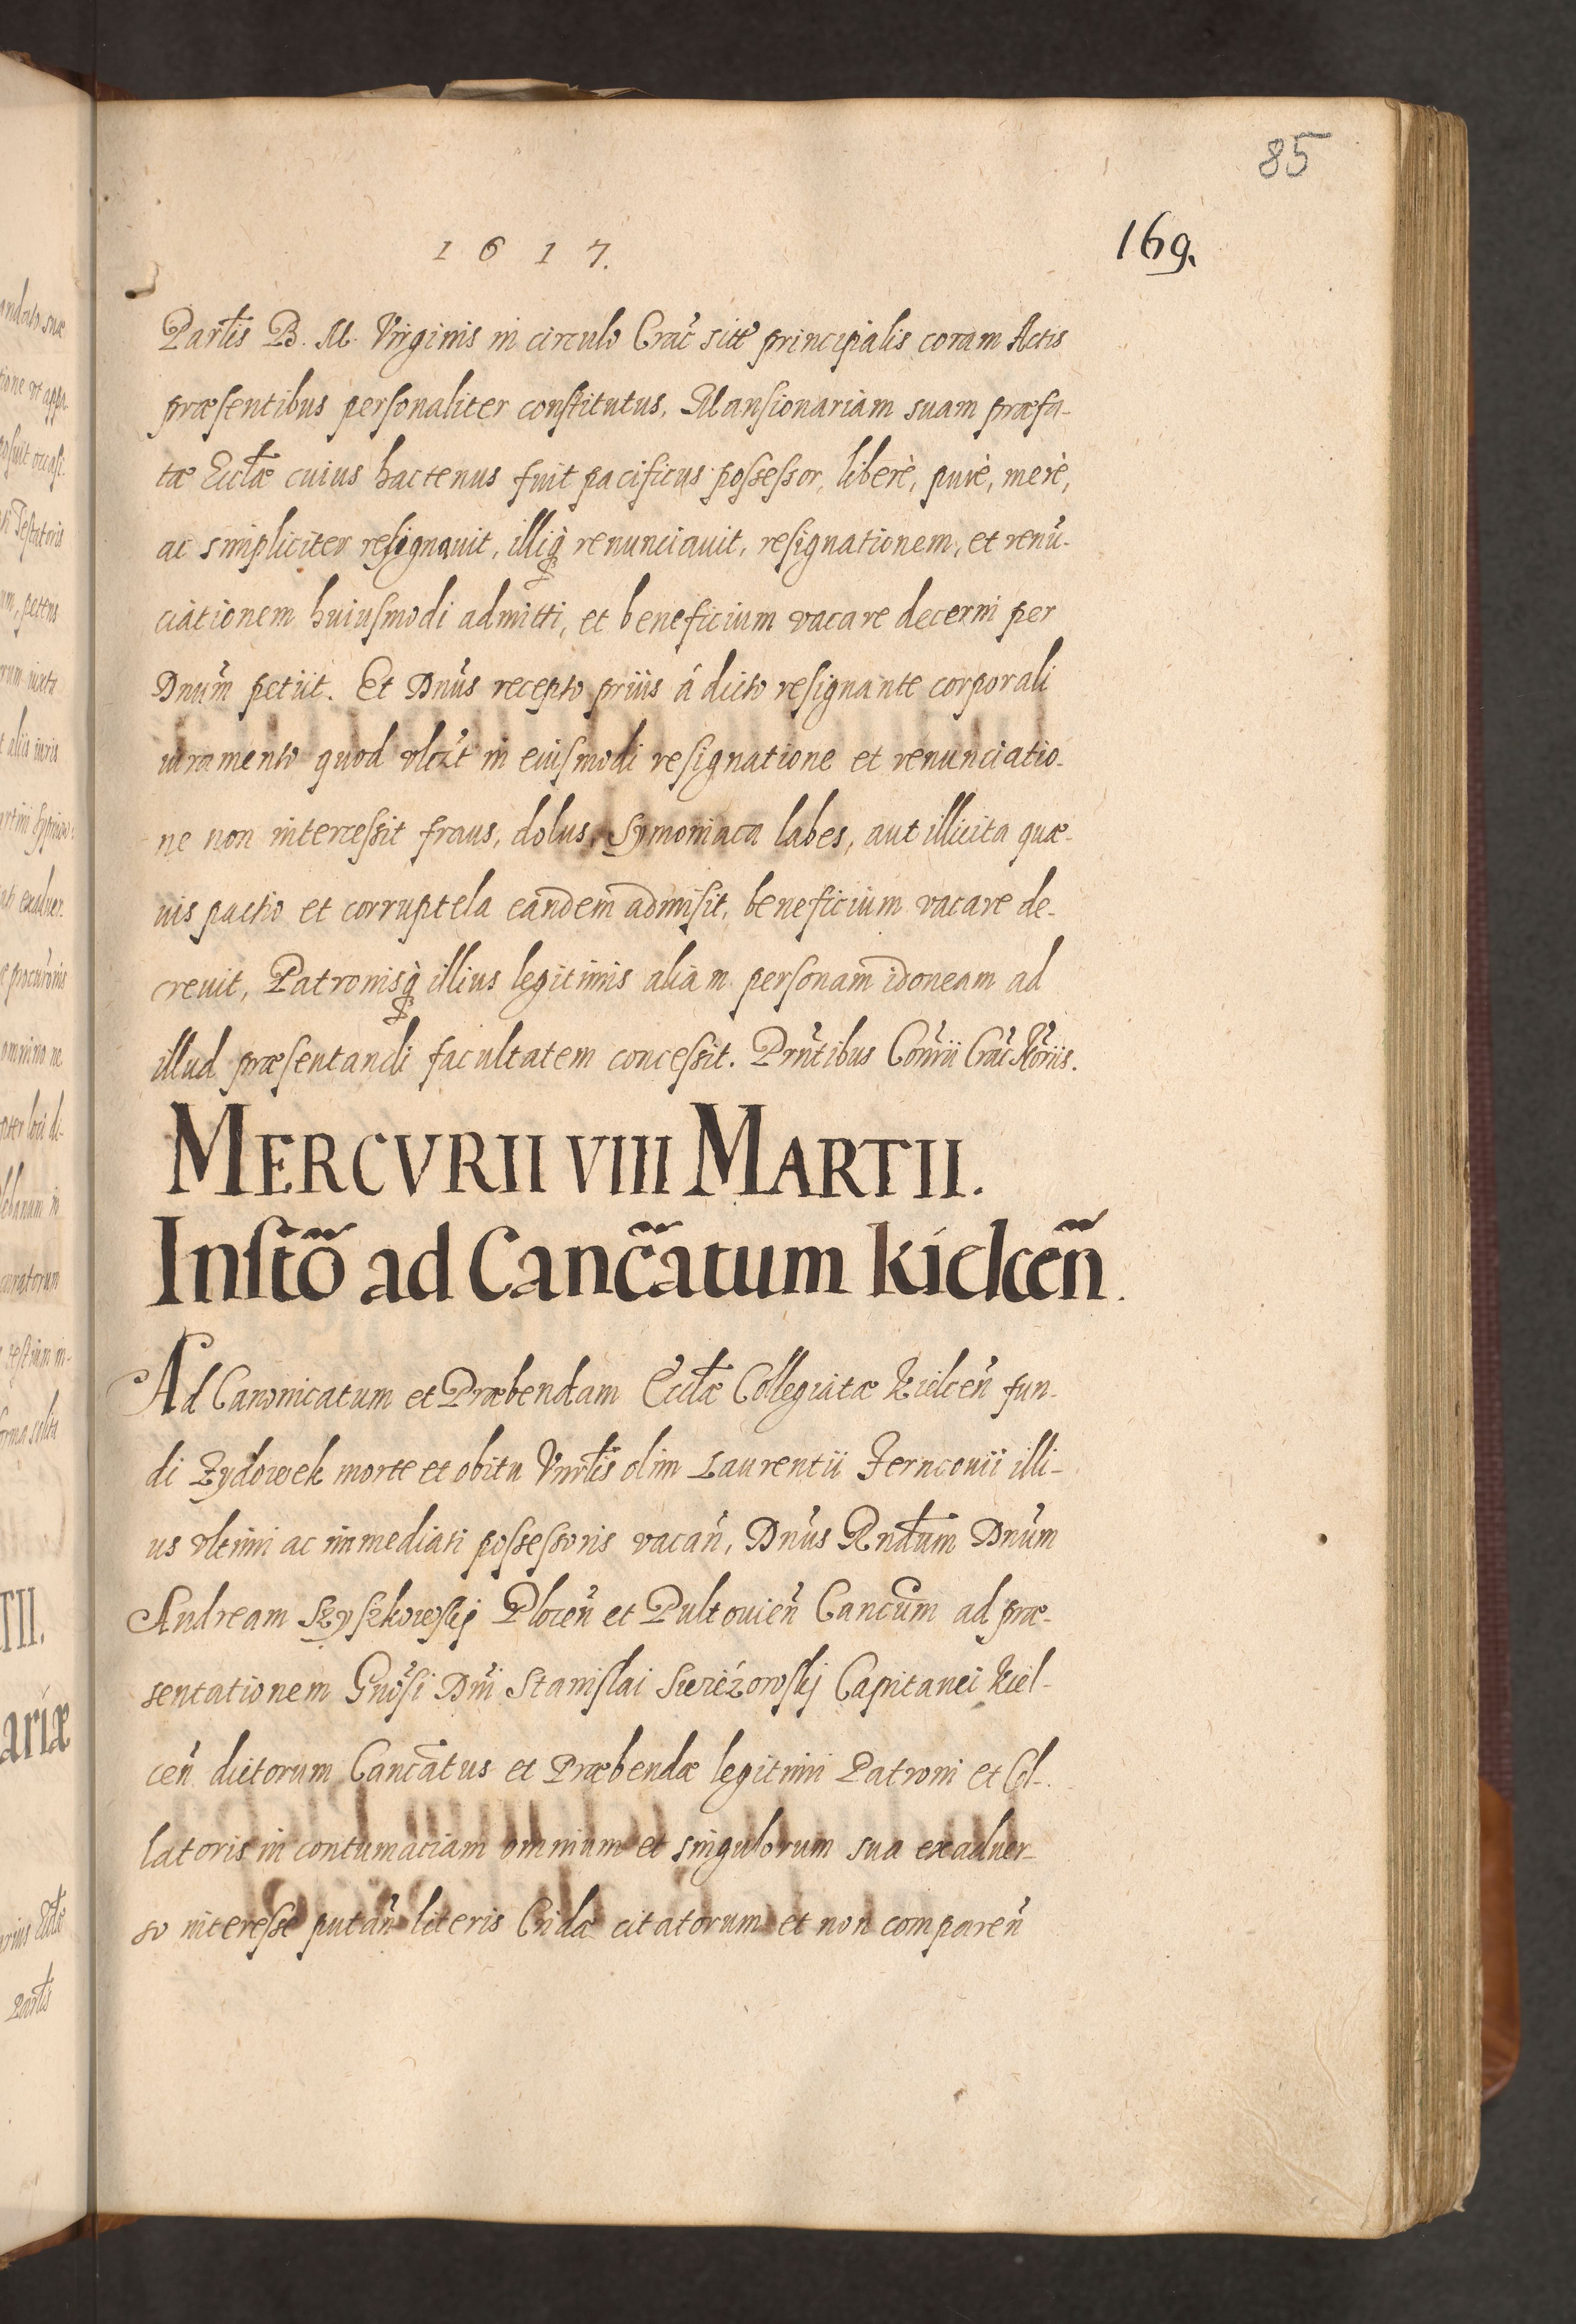 85
169.
1 6 1 7.
Partłis B. M. Virginis in circulo Crac̃ sitt̃ principalis coram Actis
præsentibus personaliter constitutus, Mansionariam suam præfa-
tæ Eccłæ cuius hactenus fuit pacificus possessor, liberè, purè, merè,
ac simpliciter resignauit, illiq̀ꝫ renunciauit, resignationem, et renũ-
ciationem huiusmodi admitti, et beneficium vacare decerni per
Dnum̃ petiit. Et Dnũs recepto priùs à dicto resignante corporali
iuramento quod in eiusmodi resignatione et renunciatio-
ne non intercessit fraus, dolus, Symoniaca labes, aut illicita quæ-
uis pactio et corruptela eandem admisit, beneficium vacare de-
creuit, Patronisq̀ꝫ illius legitimis aliam personam idoneam ad
illud præsentandi facultatem concessit. Prñtibus Coñrii Crac̃ Nõriis.
MERCVRII VIII MARTII.
Instõ ad Canc̃atum Kielceñ.
Ad Canonicatum et Præbendam Eccłæ Collegiatæ Kielceñ fun-
di Zydowek morte et obitu Vnrłis olim Laurentii Fernconii illi-
us vltimi ac immediati possessoris vacañ, Dnũs Rndum̃ Dnũm
Andream Szyszkowskj Ploceñ et Pultouieñ Cancũm ad præ-
sentationem Gnõsi Dñi Stanislai Swieżowskj Capitanei Kiel-
ceñ dictorum Canc̃atus et Præbendæ legitimi Patroni et Col-
latoris in contumaciam omnium et singulorum sua exaduer-
so interesse putañ literis Cridæ citatorum et non compareñ